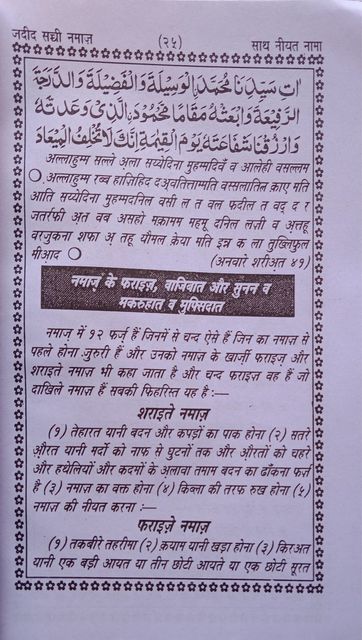 जदीद सच्ची नमाज़ (२५) साथ नीयत नामा
اٰتِ سَيِّدَنَا مُحَمَّدَ نِ الْوَسِيْلَةَ وَالْفَضِيْلَةَ وَالدَّرَجَةَ
الرَّفِيْعَةَ وَابْعَثْهُ مَقَامًا مَّحْمُوْدَ نِ الَّذِيْ وَعَدْتَّهٗ
وَارْزُقْنَا شَفَاعَتَهٗ يَوْمَ الْقِيٰمَةِ اِنَّكَ لَا تُخْلِفُ الْمِيْعَادَ
अल्लाहुम्म सल्ले अला सय्येदिना मुहम्मदिवँ व आलेही वसल्लम
अल्लाहुम्म रब्ब हाज़िहिद दअवतित्ताम्मति वस्सलातिल क़ाए मति
आति सय्येदिना मुहम्मदनिल वसी ल त वल फदील त वद् द र
जतर्रफी अत वब असहो मक़ामम महमू दनिल लज़ी व अत्तहू
वरज़ुकना शफा अ तहू यौमल क़ेया मति इन्न क ला तुख्लिफुल
मीआद (अनवारे शरीअत ४१)
नमाज़ के फराइज़, वाजिबात और सुनन व
मकरुहात व मुफ्सिदात
नमाज़ में १२ फर्ज़ हैं जिनमें से चन्द ऐसे हैं जिन का नमाज़ से
पहले होना ज़ुरुरी हैं और उनको नमाज़ के खार्ज़ी फराइज़ और
शराइते नमाज़ भी कहा जाता है और चन्द फराइज़ वह हैं जो
दाखिले नमाज़ हैं सबकी फिहरिस्त यह है :—
शराइते नमाज़
(१) तेहारत यानी बदन और कपड़ों का पाक होना (२) सतरे
औरत यानी मर्दों को नाफ से घुटनों तक और औरतों को चहरे
और हथेलियों और कदमों के अलावा तमाम बदन का ढाँकना फर्ज़
है (३) नमाज़ का वक्त होना (४) किब्ला की तरफ रुख होना (५)
नमाज़ की नीयत करना :—
फराइज़े नमाज़
(१) तकबीरे तहरीमा (२) क़याम यानी खड़ा होना (३) किरअत
यानी एक बड़ी आयत या तीन छोटी आयते या एक छोटी सूरत